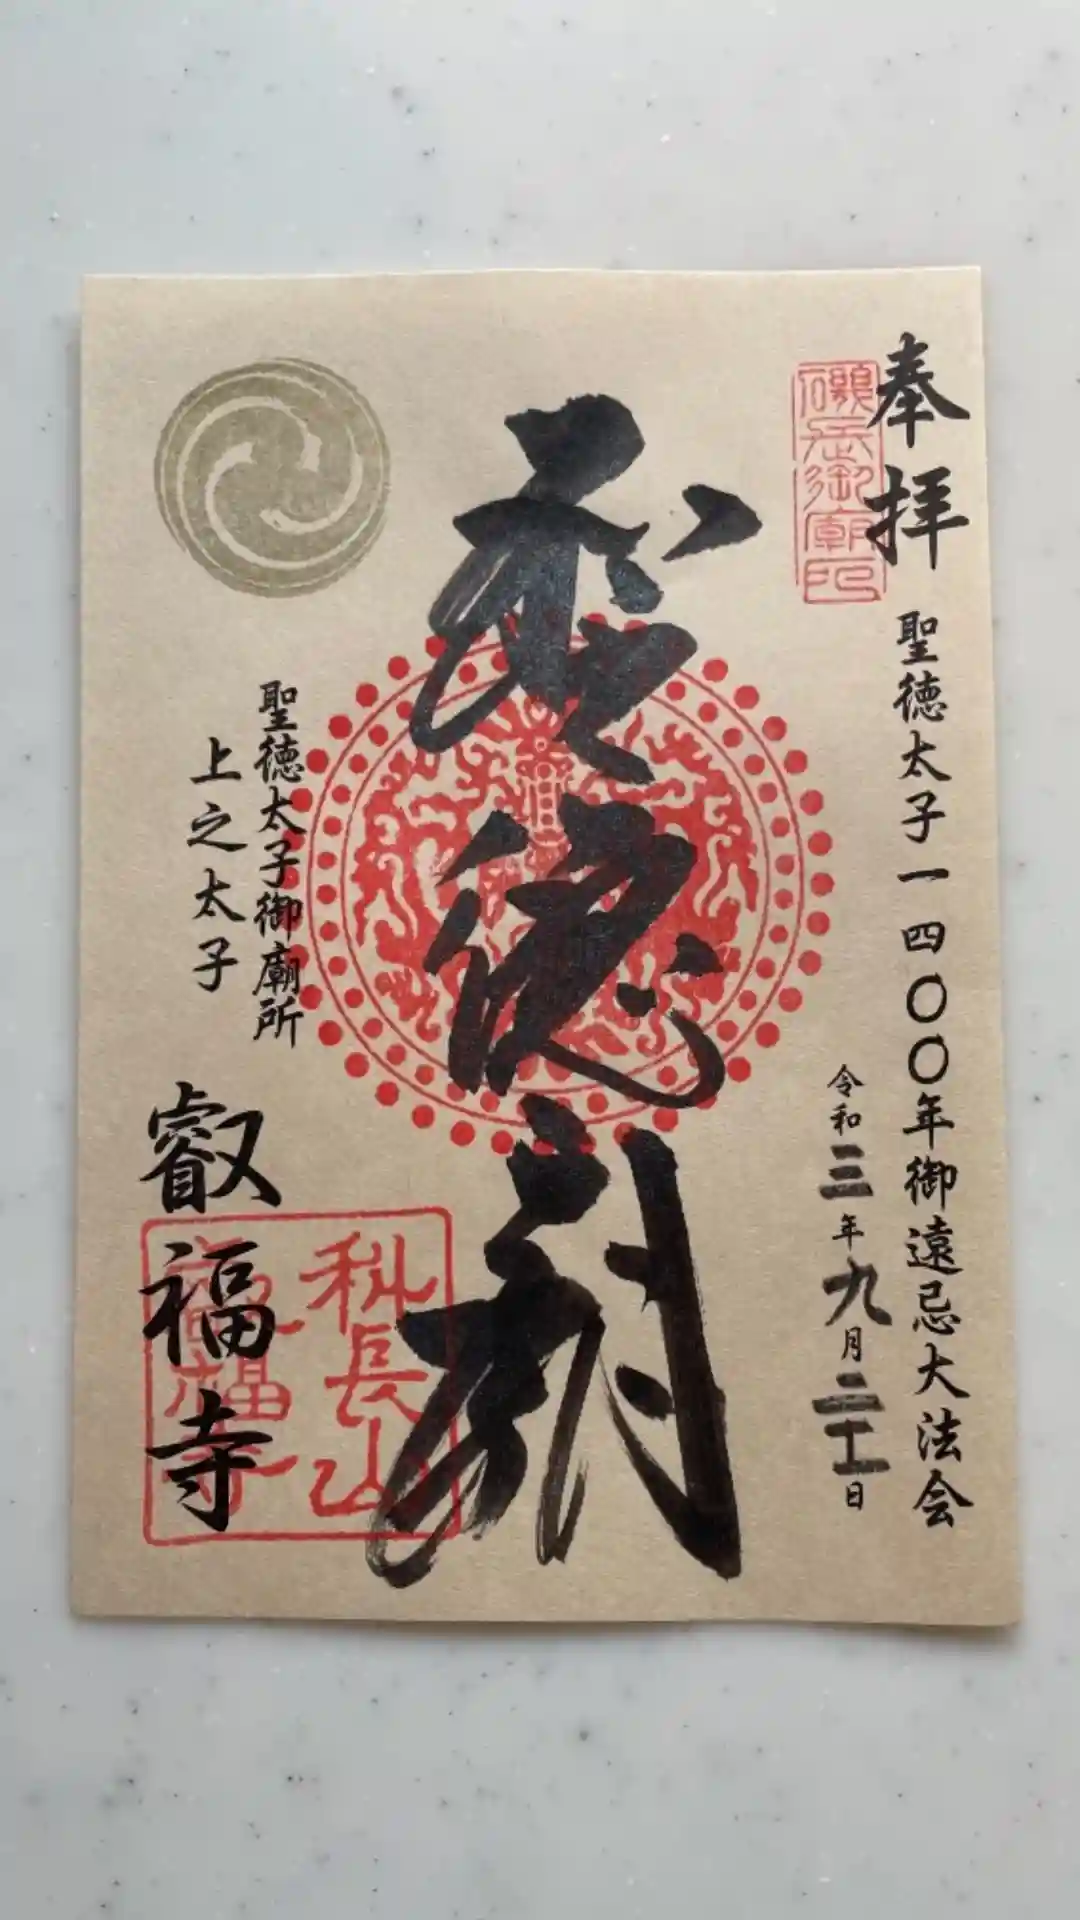 奉拝
磯長御廟印
聖徳太子一四〇〇年御遠忌大法会
令和三年九月二十一日
聖徳廟
聖徳太子御廟所
上之太子
叡福寺
科長山
叡福寺